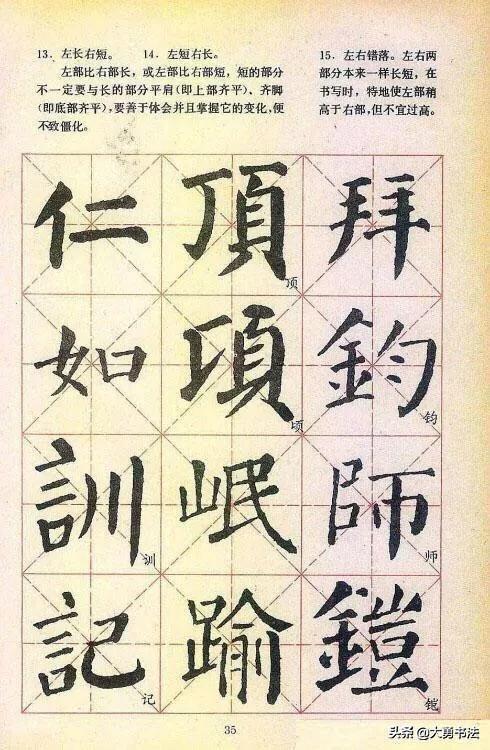 13. 左长右短。 14. 左短右长。
左部比右部长，或左部比右部短，短的部分
不一定要与长的部分平肩(即上部齐平)、齐脚
(即底部齐平)，要善于体会并且掌握它的变化，便
不致僵化。
15. 左右错落。左右两
部分本来一样长短，在
书写时，特地使左部稍
高于右部，但不宜过高。
仁 頂 顶 拜
如 項 顷 鈞 钧
訓 训 岷 師 师
記 记 踰 鎧 铠
35
头条 @大勇书法